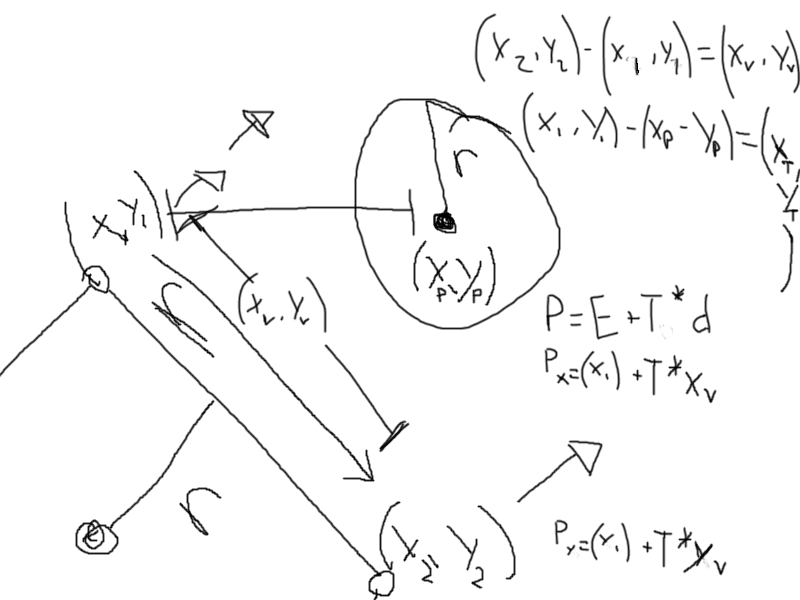 (X2, Y2) - (X1, Y1) = (Xv, Yv)
(X1, Y1) - (Xp - Yp) = (XT, YT)
r
(X1, Y1)
(Xp, Yp)
r
(Xv, Yv)
P = E + T * d
Px = (X1) + T * Xv
r
(X2, Y2)
Px = (Y1) + T * Xv